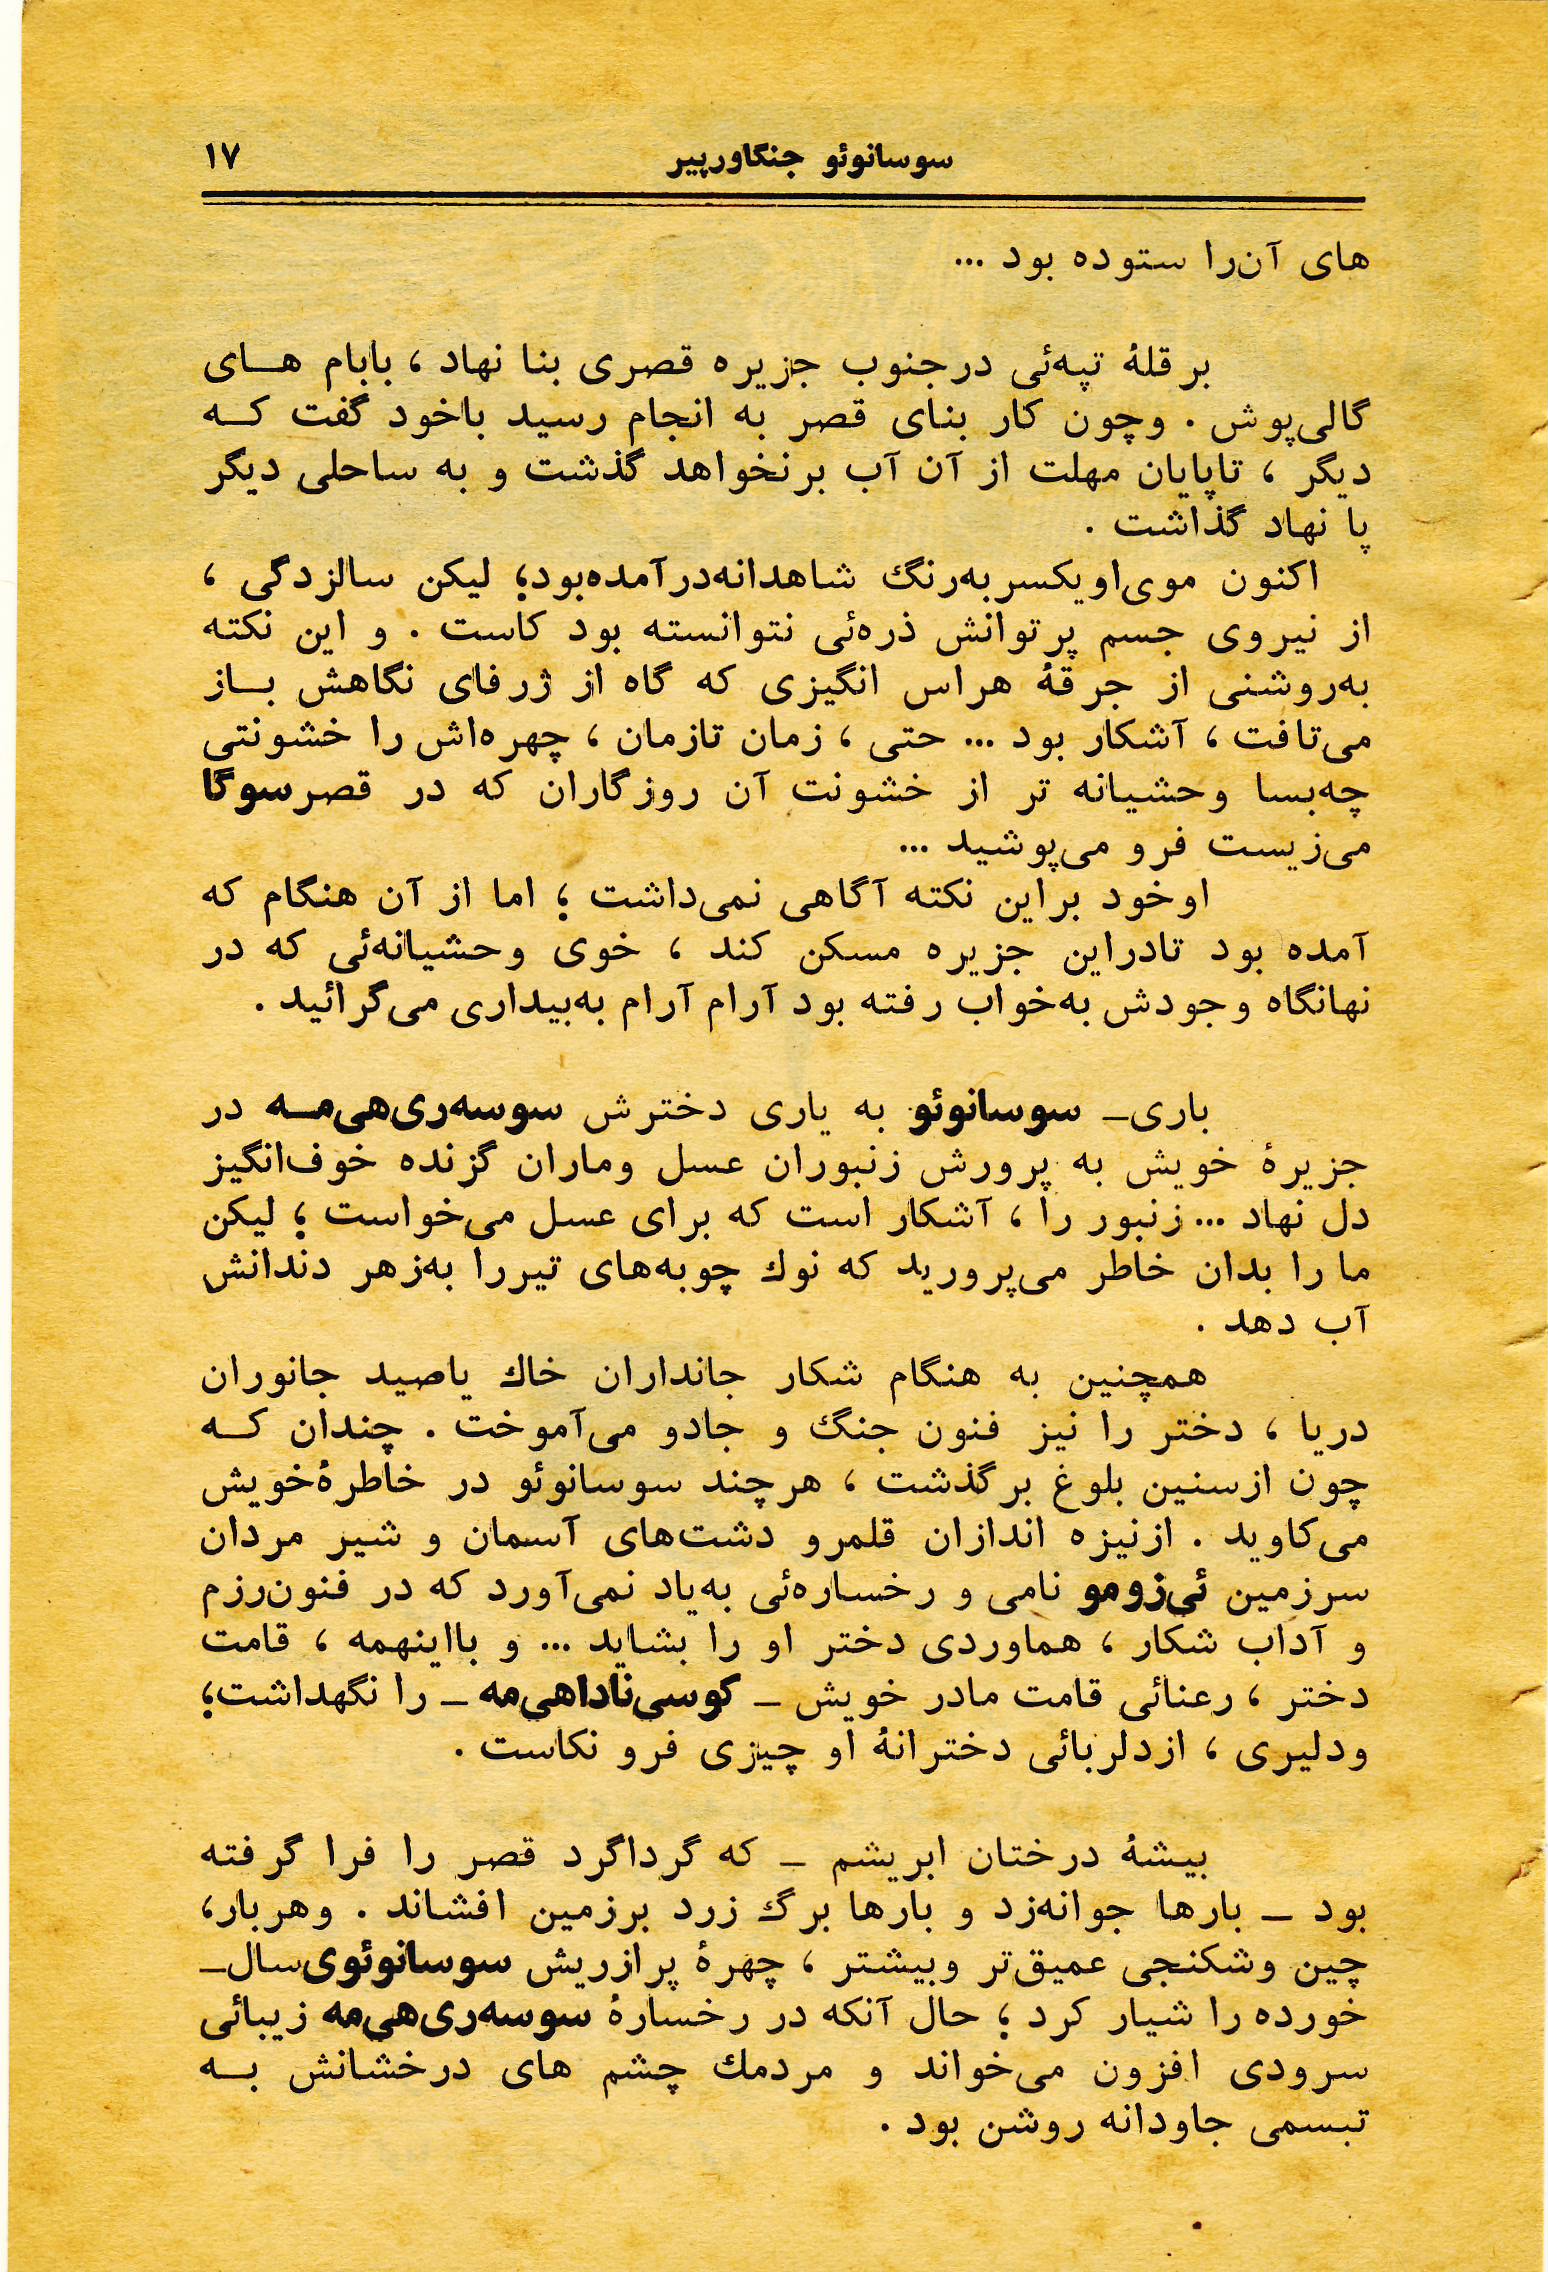 سوسانوئو جنگاورپیر ۱۷
های آن‌را ستوده بود ...
بر قلهٔ تپه‌ئی درجنوب جزیره قصری بنا نهاد ، بابام هـای
گالی‌پوش . وچون کار بنای قصر به انجام رسید باخود گفت کـه
دیگر ، تاپایان مهلت از آن آب برنخواهد گذشت و به ساحلی دیگر
پا نهاد گذاشت .
اکنون موی‌اویکسربه‌رنگ شاهدانه‌درآمده‌بود؛ لیکن سالزدگی ،
از نیروی جسم پرتوانش ذره‌ئی نتوانسته بود کاست . و این نکته
به‌روشنی از جرقهٔ هراس انگیزی که گاه از ژرفای نگاهش بـاز
می‌تافت ، آشکار بود ... حتی ، زمان تازمان ، چهره‌اش را خشونتی
چه‌بسا وحشیانه تر از خشونت آن روزگاران که در قصرسوگا
می‌زیست فرو می‌پوشید ...
اوخود براین نکته آگاهی نمی‌داشت ؛ اما از آن هنگام که
آمده بود تادراین جزیره مسکن کند ، خوی وحشیانه‌ئی که در
نهانگاه وجودش به‌خواب رفته بود آرام آرام به‌بیداری می‌گرائید .
باری_ سوسانوئو به یاری دخترش سوسه‌ری‌هی‌مـه در
جزیرهٔ خویش به پرورش زنبوران عسل وماران گزنده خوف‌انگیز
دل نهاد ... زنبور را ، آشکار است که برای عسل می‌خواست ؛ لیکن
ما را بدان خاطر می‌پرورید که نوك چوبه‌های تیررا به‌زهر دندانش
آب دهد .
همچنین به هنگام شکار جانداران خاك یاصید جانوران
دریا ، دختر را نیز فنون جنگ و جادو می‌آموخت . چندان کـه
چون ازسنین بلوغ برگذشت ، هرچند سوسانوئو در خاطرهٔ‌خویش
می‌کاوید . ازنیزه اندازان قلمرو دشت‌های آسمان و شیر مردان
سرزمین ئی‌زومو نامی و رخساره‌ئی به‌یاد نمی‌آورد که در فنون‌رزم
و آداب شکار ، هماوردی دختر او را بشاید ... و بااینهمه ، قامت
دختر ، رعنائی قامت مادر خویش _ کوسی‌ناداهی‌مه _ را نگهداشت؛
ودلیری ، ازدلربائی دخترانهٔ او چیزی فرو نکاست .
بیشهٔ درختان ابریشم _ که گرداگرد قصر را فرا گرفته
بود _ بارها جوانه‌زد و بارها برگ زرد برزمین افشاند . وهربار،
چین وشکنجی عمیق‌تر وبیشتر ، چهرهٔ پرازریش سوسانوئوی‌سال_
خورده را شیار کرد ؛ حال آنکه در رخسارهٔ سوسه‌ری‌هی‌مه زیبائی
سرودی افزون می‌خواند و مردمك چشم های درخشانش بـه
تبسمی جاودانه روشن بود .